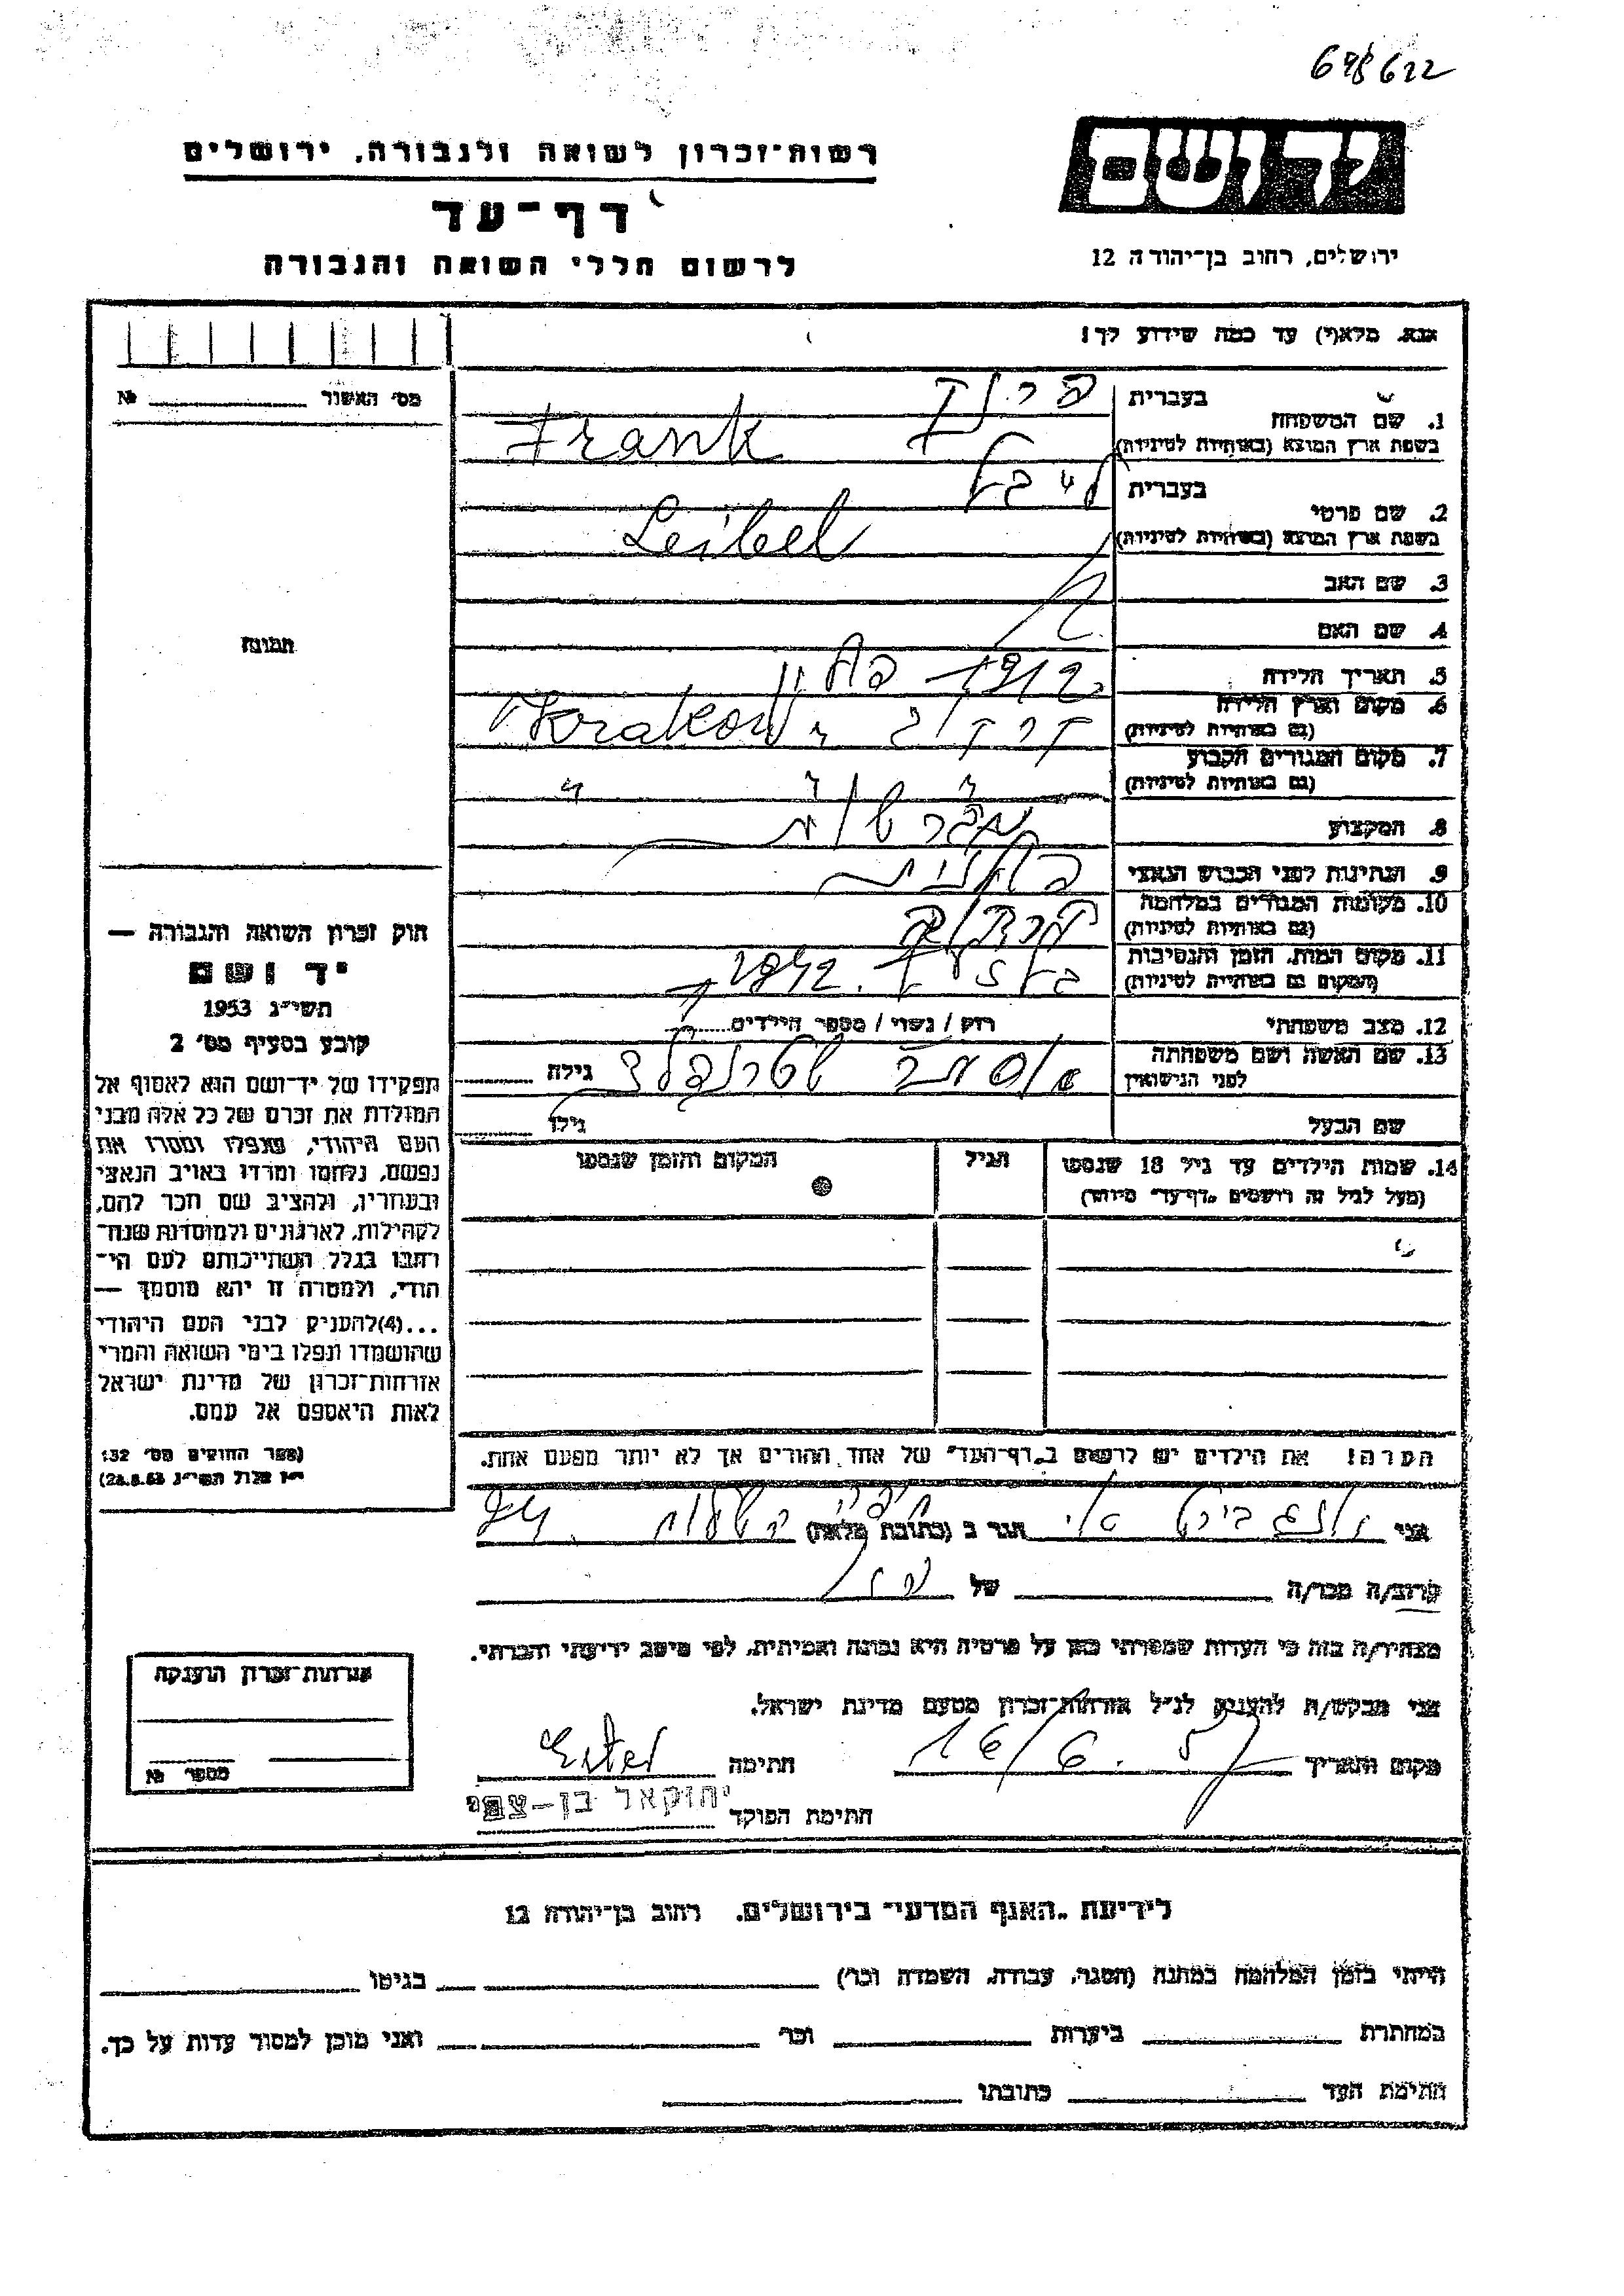 698622
יד ושם
רשות־זכרון לשואה ולגבורה, ירושלים
דף־עד
לרשום חללי השואה והגבורה
ירושלים, רחוב בן־יהודה 12
אנא, מלא(י) עד כמה שידוע לך!
מס׳ האשור № 
1. שם המשפחה
בעברית פרנק
בשפת ארץ המוצא (באותיות לטיניות) Frank
2. שם פרטי
בעברית לייבל
בשפת ארץ המוצא (באותיות לטיניות) Leibel
3. שם האב
4. שם האם
5. תאריך הלידה 1912
6. מקום וארץ הלידה
(גם באותיות לטיניות) Krakow
7. מקום המגורים הקבוע
(גם באותיות לטיניות) " " "
8. המקצוע
9. הנתינות לפני הכבוש הנאצי
10. מקומות המגורים במלחמה
(גם באותיות לטיניות) קרקוב
11. מקום המות, הזמן והנסיבות
(המקום גם באותיות לטיניות) 1942
12. מצב משפחתי רווק / נשוי / מספר הילדים
13. שם האשה ושם משפחתה
לפני הנישואין גילה
שם הבעל גילו
14. שמות הילדים עד גיל 18 שנספו
(מעל לגיל זה רושמים "דף־עד" מיוחד)
הגיל
המקום והזמן שנספו
הערה! את הילדים יש לרשום ב"דף־העד" של אחד ההורים אך לא יותר מפעם אחת.
תמונה
חוק זכרון השואה והגבורה —
יד ושם
תשי״ג 1953
קובע בסעיף מס׳ 2
תפקידו של יד־ושם הוא לאסוף אל
המולדת את זכרם של כל אלה מבני
העם היהודי, שנפלו ומסרו את
נפשם, נלחמו ומרדו באויב הנאצי
ובעוזריו, ולהציב שם וזכר להם,
לקהילות, לארגונים ולמוסדות שנח־
רבו בגלל השתייכותם לעם הי־
הודי, ולמטרה זו יהא מוסמך —
...(4)להעניק לבני העם היהודי
שהושמדו ונפלו בימי השואה והמרי
אזרחות־זכרון של מדינת ישראל
לאות היאספם אל עמם.
(ספר החוקים מס׳ 132
י״ז אלול תשי״ג 28.8.53)
אני הגר ב (כתובת מלאה)
קרוב/ה מכר/ה של
מצהיר/ה בזה כי העדות שמסרתי כאן על פרטיה היא נכונה ואמיתית, לפי מיטב ידיעתי והכרתי.
אני מבקש/ת להעניק לנ״ל אזרחות־זכרון מטעם מדינת ישראל.
מקום ותאריך 16/6.57 חתימה Ester
חתימת הפוקד יחזקאל בן־צבי
אזרחות־זכרון הוענקה
מספר №
לידיעת "האגף המדעי" בירושלים, רחוב בן־יהודה 12
הייתי בזמן המלחמה במחנה (הסגר, עבודה, השמדה וכו׳) בגיטו
במחתרת ביערות וכו׳ ואני מוכן למסור עדות על כך.
חתימת העד כתובתו